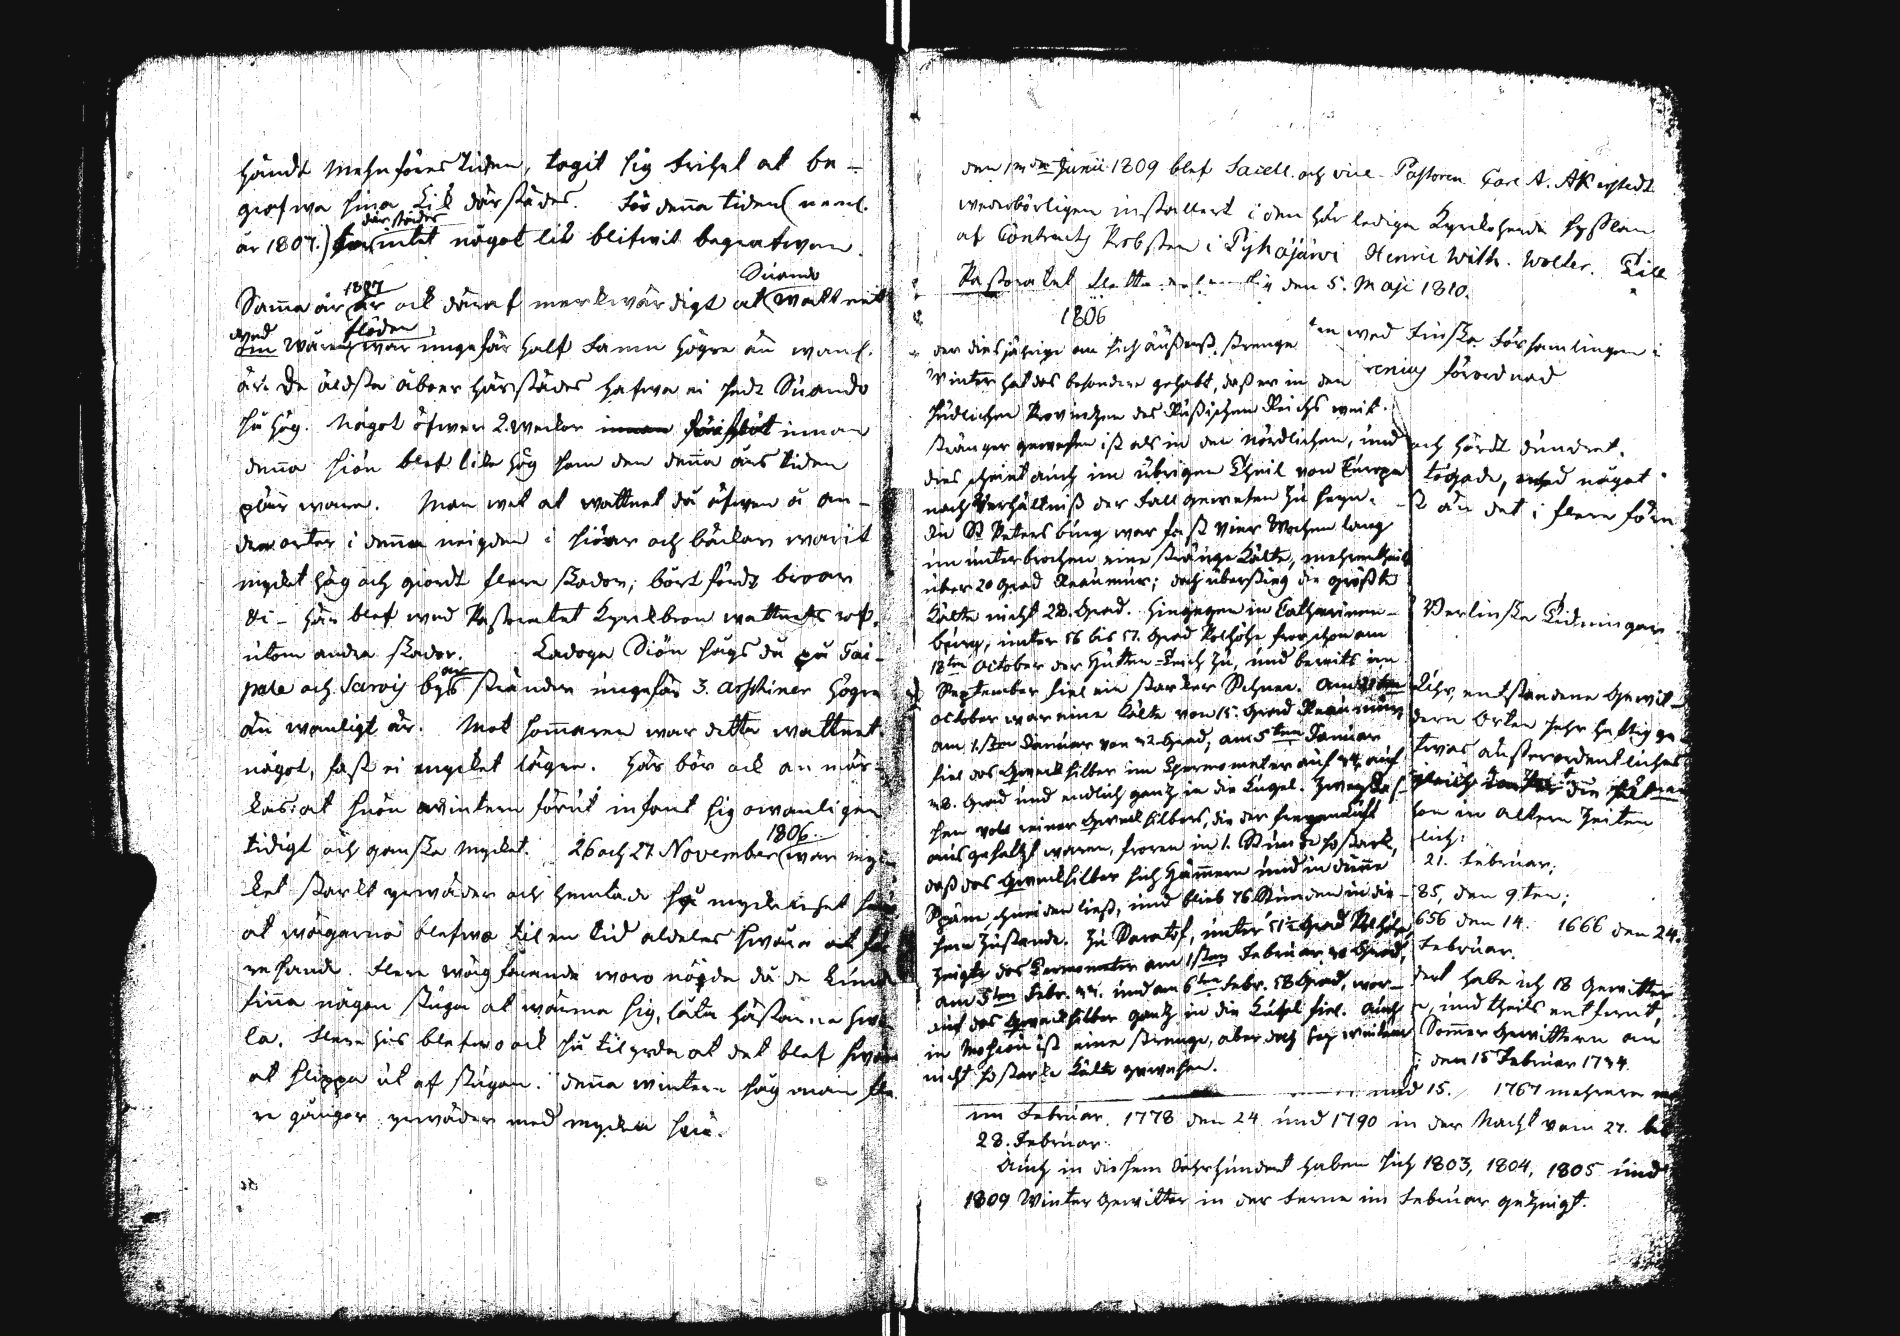 händt Mehnföres tiden, tagit sig frihet at be-
grafwa sina Lik därstädes. För denna tiden (neml.
år 1807.) därstädes intet något lik blifwit begrafwen.
Sama år 1807 är ock däraf merkwärdigt at Suando wattnet
wid wåren floden war ungefär half famn högre än wanl.
är. De äldsta åboer härstädes hafwa ei sedt Suando
så hög. Något öfwer 2. weckor innan
denna siön blef lika hög som den denna års tiden
plär wara. Man wet at wattnet då äfwen å an-
dra orter i denna neigden i siöar och bäckar warit
mycket hög och giordt flere skador, bort fördt broar
&c- Här blef wid Pastoratet Kyrkbron wattnets rof,
utom andra skador. Ladoga Siön sågs då på Tai-
pale och Sarois byars stränder ungefär 3. arschiner högre
än wanligt är. Mot sommaren war detta wattnet
något, fast ei mycket lägre. Här bör ock an mär-
kas: at snön wintern förut infant sig owanligen
tidigt och ganska mycket. 26 och 27 November 1806. war myc-
ket starkt yrwäder och hemtade så mycken snö
at wägarna blefwo til en tid aldeles swåra at fa-
resande. Flere wäg farande woro nögde då de kunde
finna någon stuga at wärma sig, låta hästarna hwi-
la. Flere hus blefwo ock så til yrda at det blef swårt
at slippa ut af stugan. Denna wintern såg man fle-
re gånger yrwäder med mycken snö.
den Junii 1809 blef Sacell. och vice Pastoren Carl A. Akerstedt
wederbörligen installert i den här lediga Kyrkoherde Sysslan
af Contracts Probsten i Pyhäjärvi Henric Wilh. Wolter. Till
Pastoratet den 5. Maji 1810.
1806
der diesjährige an sich äußerst strenge
Winter hat das besondere gehabt, daß er in den
südlichen Provintzen des Rußischen Reichs weit
stränger gewesen ist als in den nördlichen, und
dies scheint auch im übrigen Theil von Europa
nach Verhältniß der Fall gewesen zu seyn.
In St Petersburg war fast vier Wochen lang
ununterbrochen eine stränge Kälte, mehrentheils
über 20 Grad Reaumur; doch überstieg die größte
Kälte nicht 28. Grad. Hingegen in Catharinen-
burg, unter 56 bis 57. Grad Polhöhe fror schon am
12ten October der Hütten-Teich zu, und bereits im
September fiel ein starker Schnee. Am
October war eine Kälte von 15. Grad Reaumur,
am 1.sten Januar von 32 Grad, am 5ten Januar
fiel das Quecksilber im Thermometer auf auf
38. Grad und endlich gantz in die Kugel.
hen reines Quecksilbers, die der freyen Luft
ausgesetzt waren, froren in 1. Stunde so stark,
daß das Quecksilber sich hämmern und in dünne
Späne schneiden ließ, und blieb 76 Stunden in die-
sem Zustande. Zu Saratof, unter 51½ Grad Polhöhe,
zeigte das Termometer am 1sten Februar Grad,
am 5ten Febr. und am 6ten Febr. Grad, wor-
auf das Quecksilber gantz in die Kugel fiel. Auch
in Moscau ist eine strenge, aber doch bey weitem
nicht so starke Kälte gewesen.
ten wed Finska Församlingen i
renius förordnad
och hördt dundret.
togade, med något
än det i flere förn
Berlinska Tidningar
Uhr, entstandene Gewit-
dern Orten sehr heftig ge
twas außerordentliches
hon in altern Zeiten
lich:
21. Februar;
85, den 9ten;
656 den 14. 1666 den 24.
Februar.
dert, habe ich 18 Gewitter
und theils entfernt,
Sommer Gewittern an
den 15 Februar 1734.
und 15. 1767 mehrere
im Februar. 1778 den 24 und 1790 in der Nacht vom 27. bis
28. Februar.
Auch in diesem Jahrhundert haben sich 1803, 1804, 1805 und
1809 Winter Gewitter in der Ferne im Februar gezeigt.